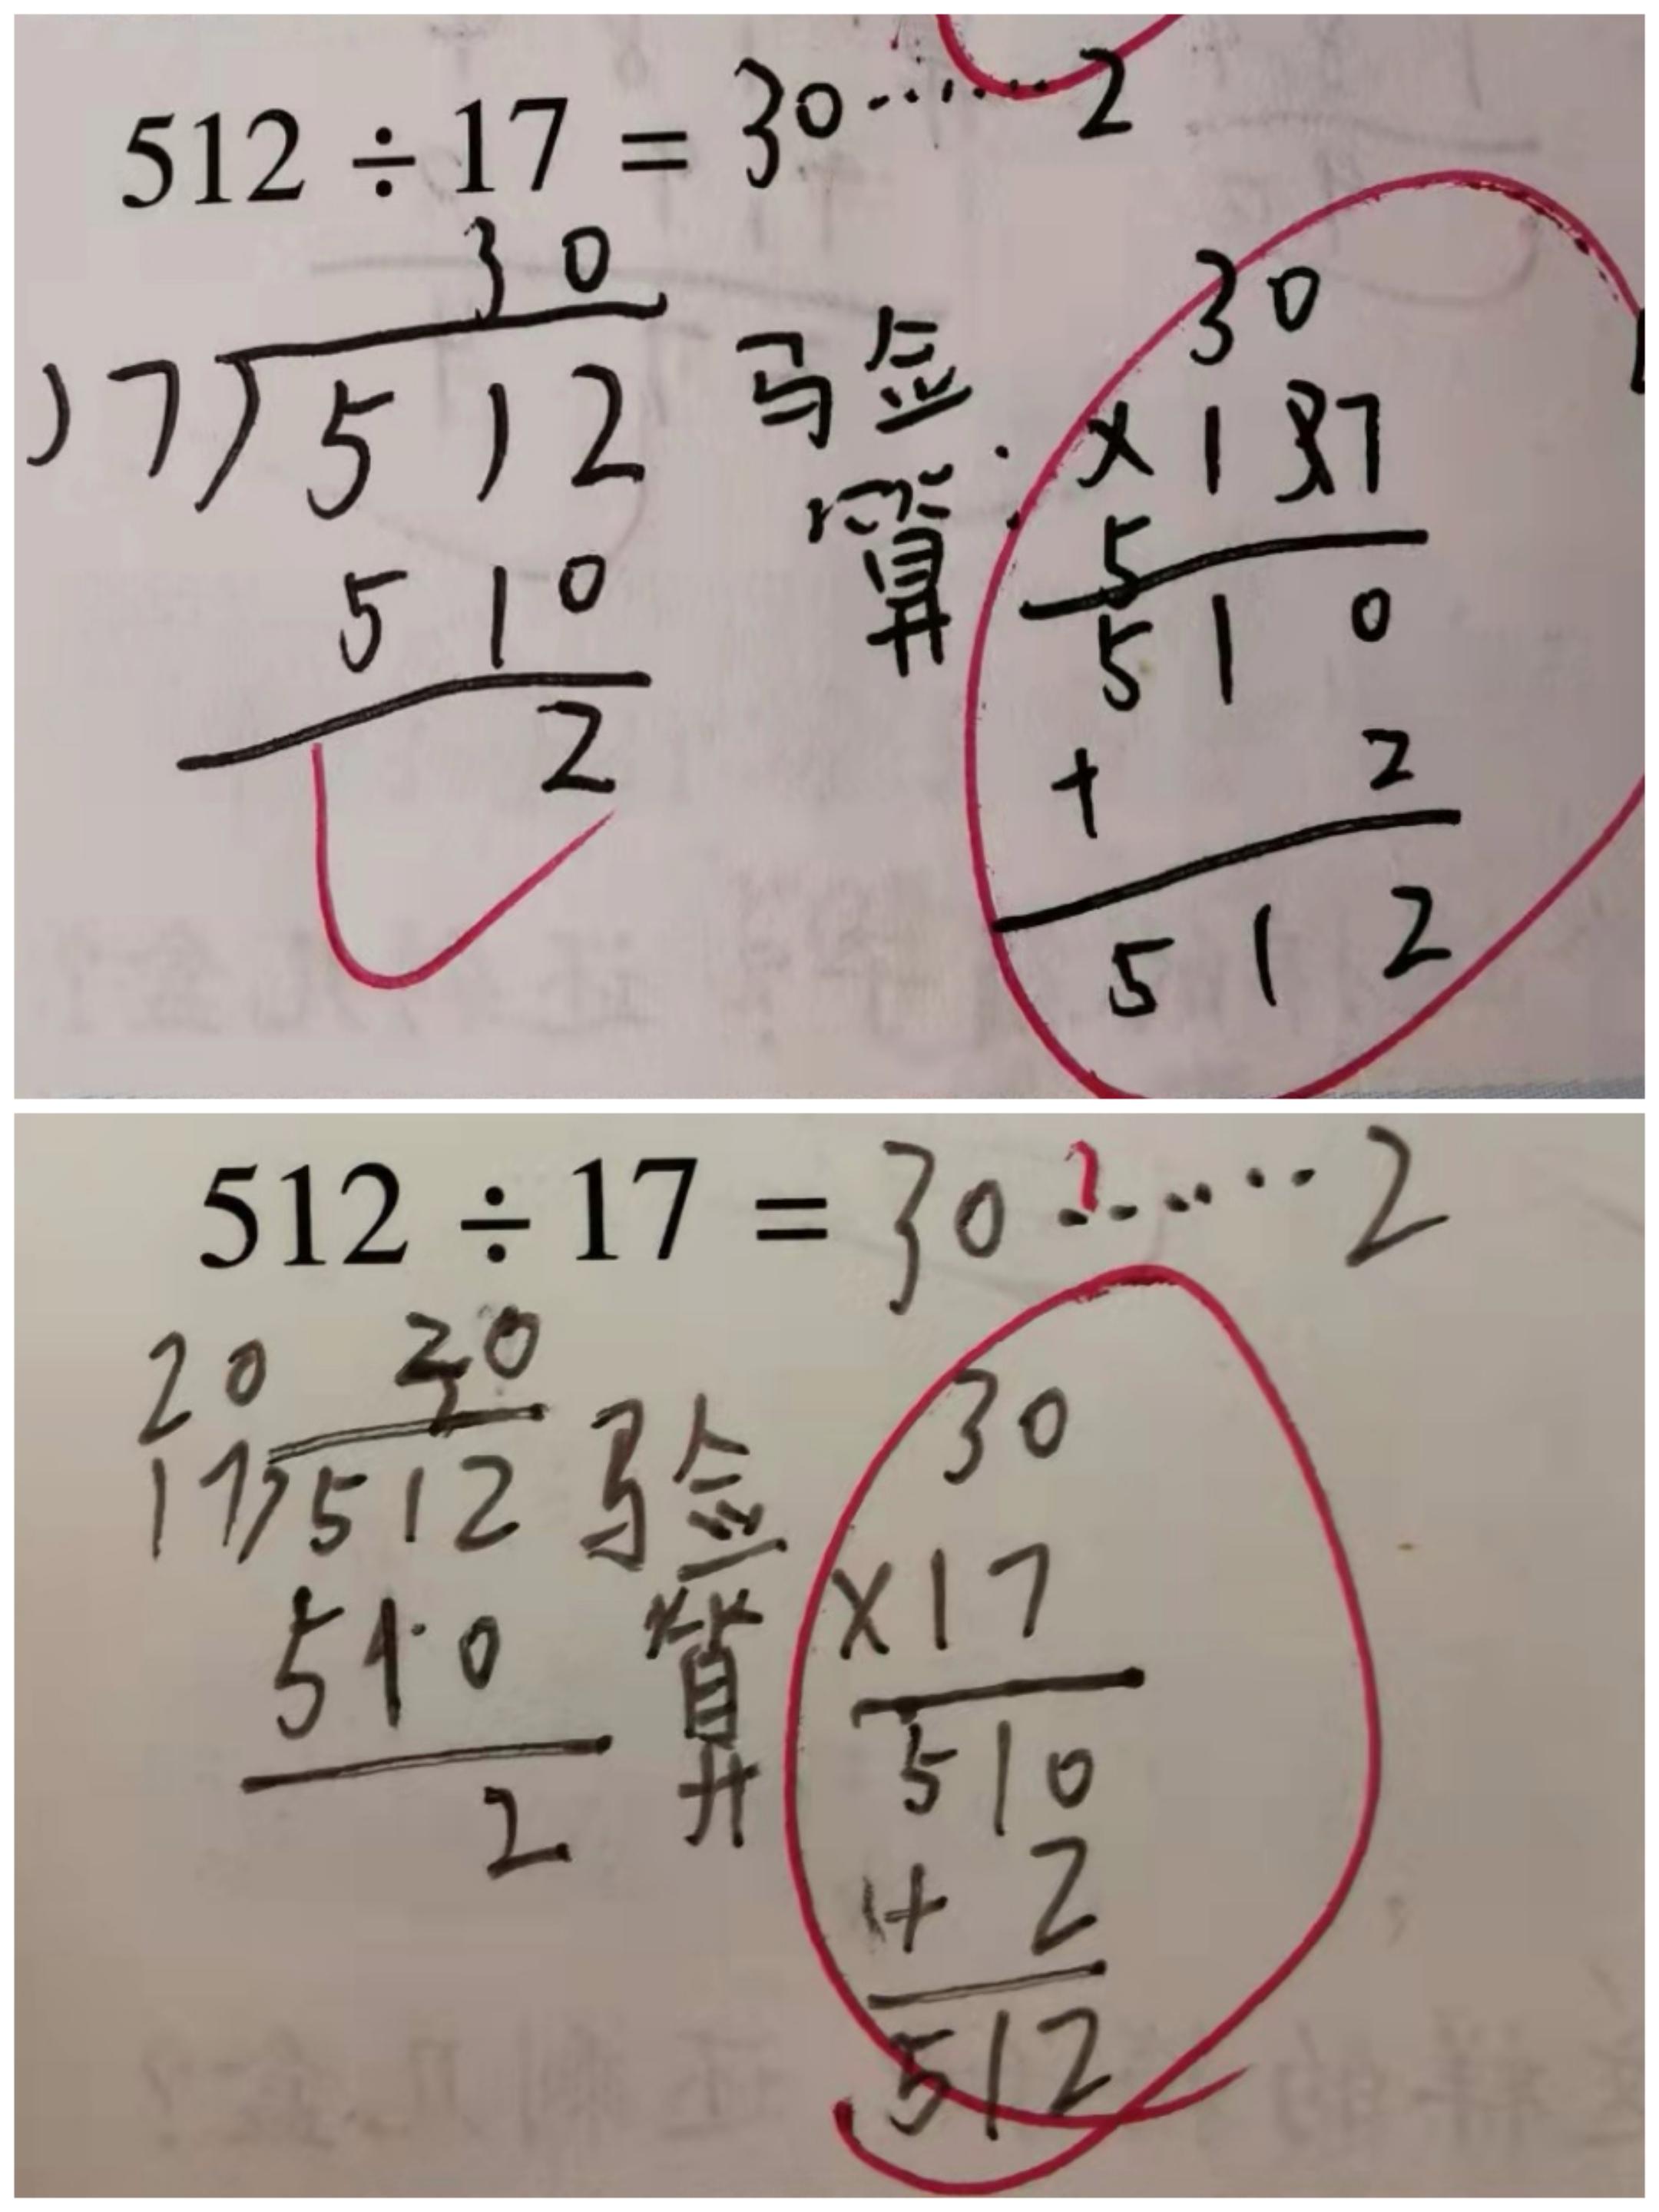 512 ÷ 17 = 30 ······ 2
30
17)512
510
2
验算:
30
×17
510
+ 2
512
512 ÷ 17 = 30 ······ 2
20 30
17)512
510
2
验算
30
×17
510
+ 2
512